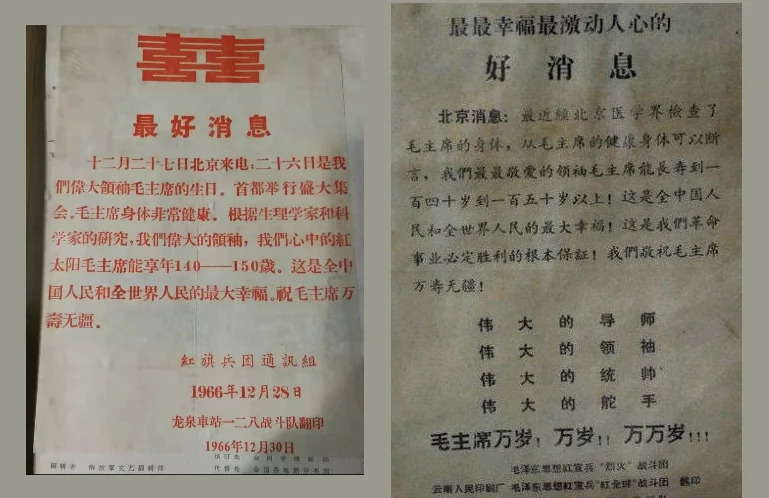 囍
最好消息
十二月二十七日北京来电，二十六日是我
們偉大領袖毛主席的生日。首都举行盛大集
会。毛主席身体非常健康。根据生理学家和科
学家的研究，我們偉大的領袖，我們心中的紅
太阳毛主席能享年140——150歲。这是全中
国人民和全世界人民的最大幸福。祝毛主席万
壽无疆。
紅旗兵团通訊組
1966年12月28日
龙泉車站一二八战斗队翻印
1966年12月30日
最最幸福最激动人心的
好消息
北京消息：最近經北京医学界检查了
毛主席的身体，从毛主席的健康身体可以断
言，我們最最敬爱的領袖毛主席能長寿到一
百四十岁到一百五十岁以上！这是全中国人
民和全世界人民的最大幸福！这是我們革命
事业必定胜利的根本保証！我們敬祝毛主席
万寿无疆！
伟大的导师
伟大的领袖
伟大的统帅
伟大的舵手
毛主席万岁！万岁！！万万岁！！！
毛泽东思想紅宣兵“烈火”战斗团
云南人民印刷厂 毛泽东思想紅宣兵“紅全球”战斗团 翻印